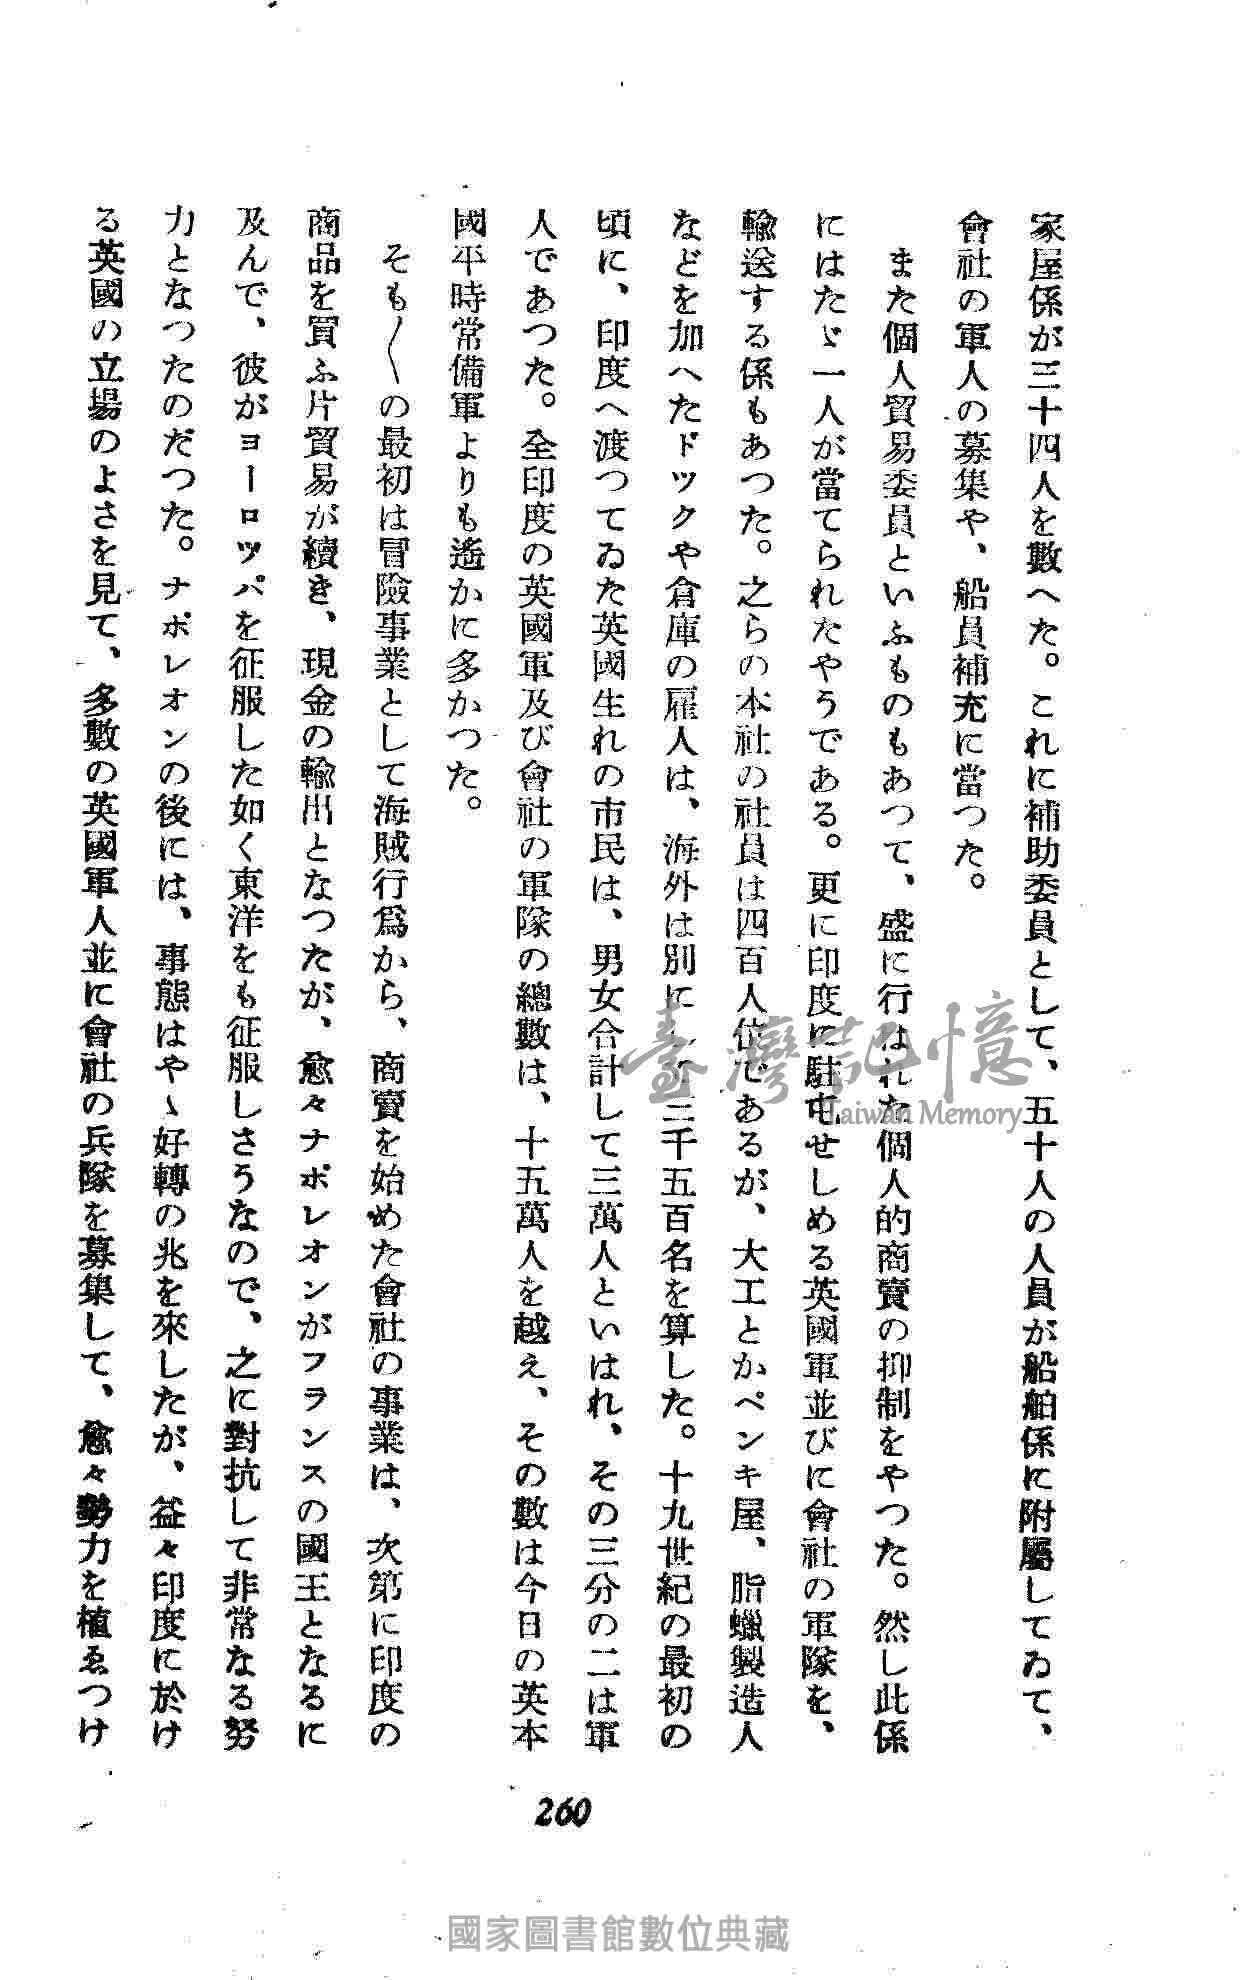 家屋係が三十四人を數へた。これに補助委員として、五十人の人員が船舶係に附屬してゐて、
會社の軍人の募集や、船員補充に當つた。
また個人貿易委員といふものもあつて、盛に行はれた個人的商賣の抑制をやつた。然し此係
にはたゞ一人が當てられたやうである。更に印度に駐屯せしめる英國軍並びに會社の軍隊を、
輸送する係もあつた。之らの本社の社員は四百人位であるが、大工とかペンキ屋、脂蠟製造人
などを加へたドックや倉庫の雇人は、海外は別にして三千五百名を算した。十九世紀の最初の
頃に、印度へ渡つてゐた英國生れの市民は、男女合計して三萬人といはれ、その三分の二は軍
人であつた。全印度の英國軍及び會社の軍隊の總數は、十五萬人を越え、その數は今日の英本
國平時常備軍よりも遙かに多かつた。
そも〱の最初は冒險事業として海賊行爲から、商賣を始めた會社の事業は、次第に印度の
商品を買ふ片貿易が續き、現金の輸出となつたが、愈々ナポレオンがフランスの國王となるに
及んで、彼がヨーロッパを征服した如く東洋をも征服しさうなので、之に對抗して非常なる努
力となつたのだつた。ナポレオンの後には、事態はやゝ好轉の兆を來したが、益々印度に於け
る英國の立場のよさを見て、多數の英國軍人並に會社の兵隊を募集して、愈々勢力を植ゑつけ
260
臺灣記憶
Taiwan Memory
國家圖書館數位典藏